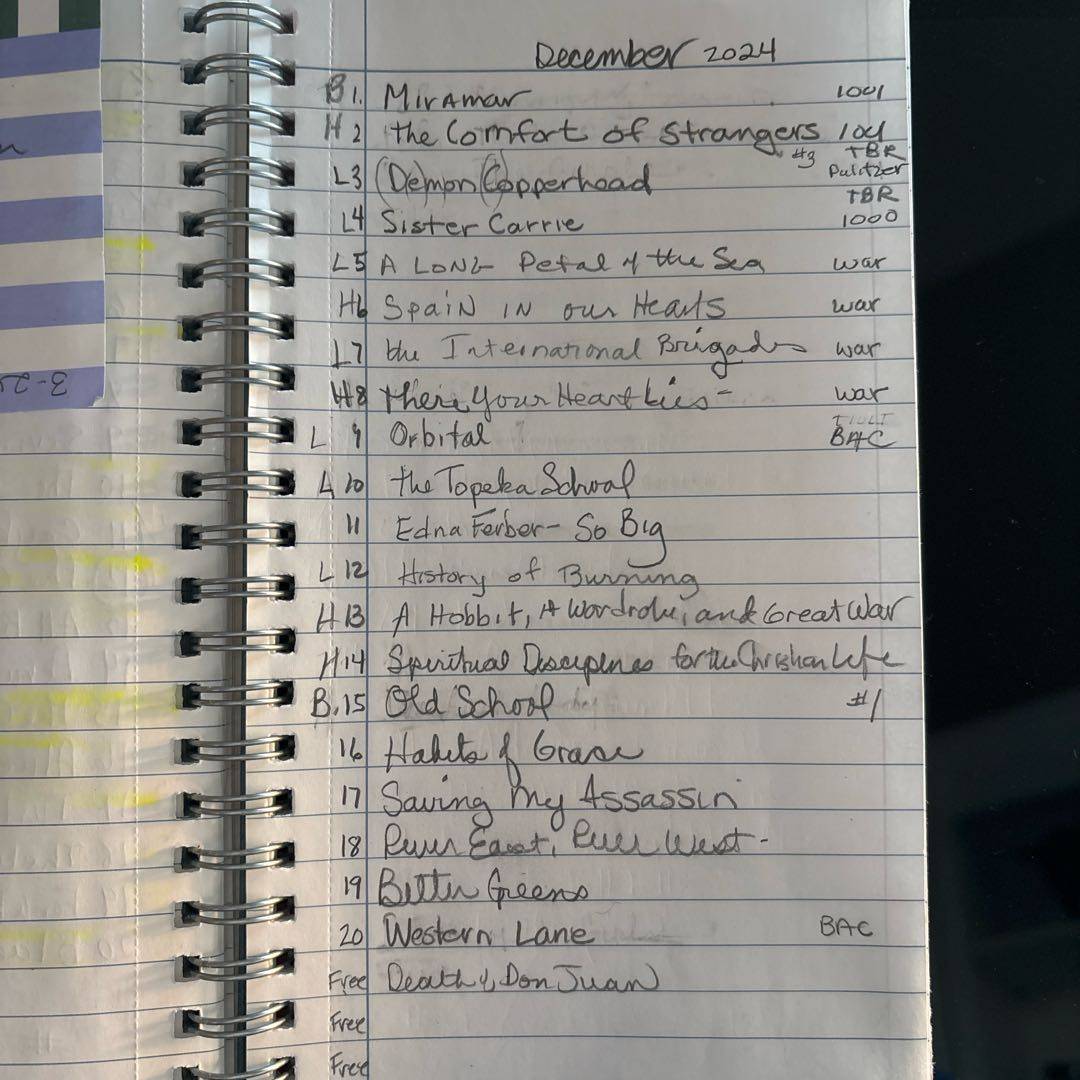 December 2024
B 1. Miramar 1001
H 2 the Comfort of Strangers 1001
#3 TBR
L3 (De)mon (C)opperhead Pulitzer
TBR
L4 Sister Carrie 1000
L5 A Long Petal of the Sea war
H6 Spain in our Hearts war
L7 the International Brigades war
H8 There Your Heart Lies - war
L 9 Orbital BAC
L 10 the Topeka School
11 Edna Ferber - So Big
L 12 History of Burning
H 13 A Hobbit, A Wardrobe, and Great War
H 14 Spiritual Disciplines for the Christian Life
B. 15 Old School #1
16 Habits of Grace
17 Saving My Assassin
18 River East, River West -
19 Bitter Greens
20 Western Lane BAC
Free Death of Don Juan
Free
Free
3-20